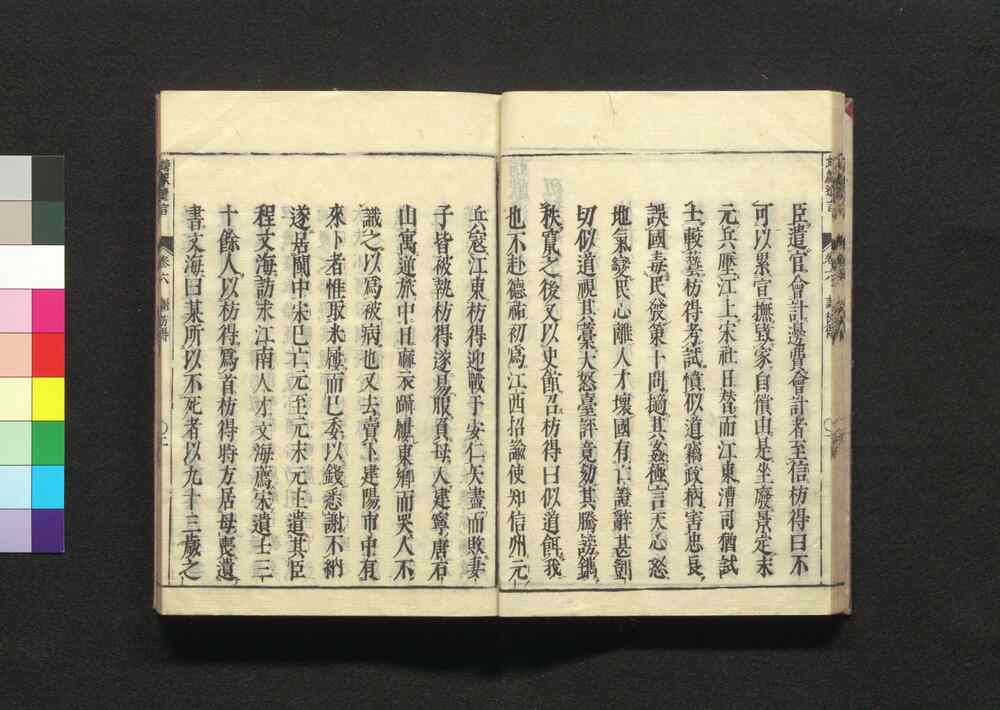 臣遣官會計邊費會計者至信枋得曰不
可以累宣撫斃家自償由是坐廢景定末
元兵壓江上宋社日替而江東漕司猶試
士較藝枋得考試憤似道竊政柄害忠良
誤國毒民發策十問擿其姦極言天心怒
地氣變民心離人才壞國有亡證辭甚剴
切似道視其藁大怒臺評竟劾其騰謗鐫
秩竄之後又以史館召枋得曰似道餌我
也不赴德祐初爲江西招諭使知信州元
兵寇江東枋得迎戰于安仁矢盡而敗妻
子皆被執枋得遂易服負母入建寧唐石
山寓逆旅中日麻衣躡屨東鄉而哭人不
識之以爲被病也又去賣卜建陽市中有
來卜者惟取米屨而已委以錢悉謝不納
遂居閩中宋已亡元至元末元主遣其臣
程文海訪求江南人才文海薦宋遺士三
十餘人以枋得爲首枋得時方居母喪遺
書文海曰某所以不死者以九十三歲之
卷六
謝枋得